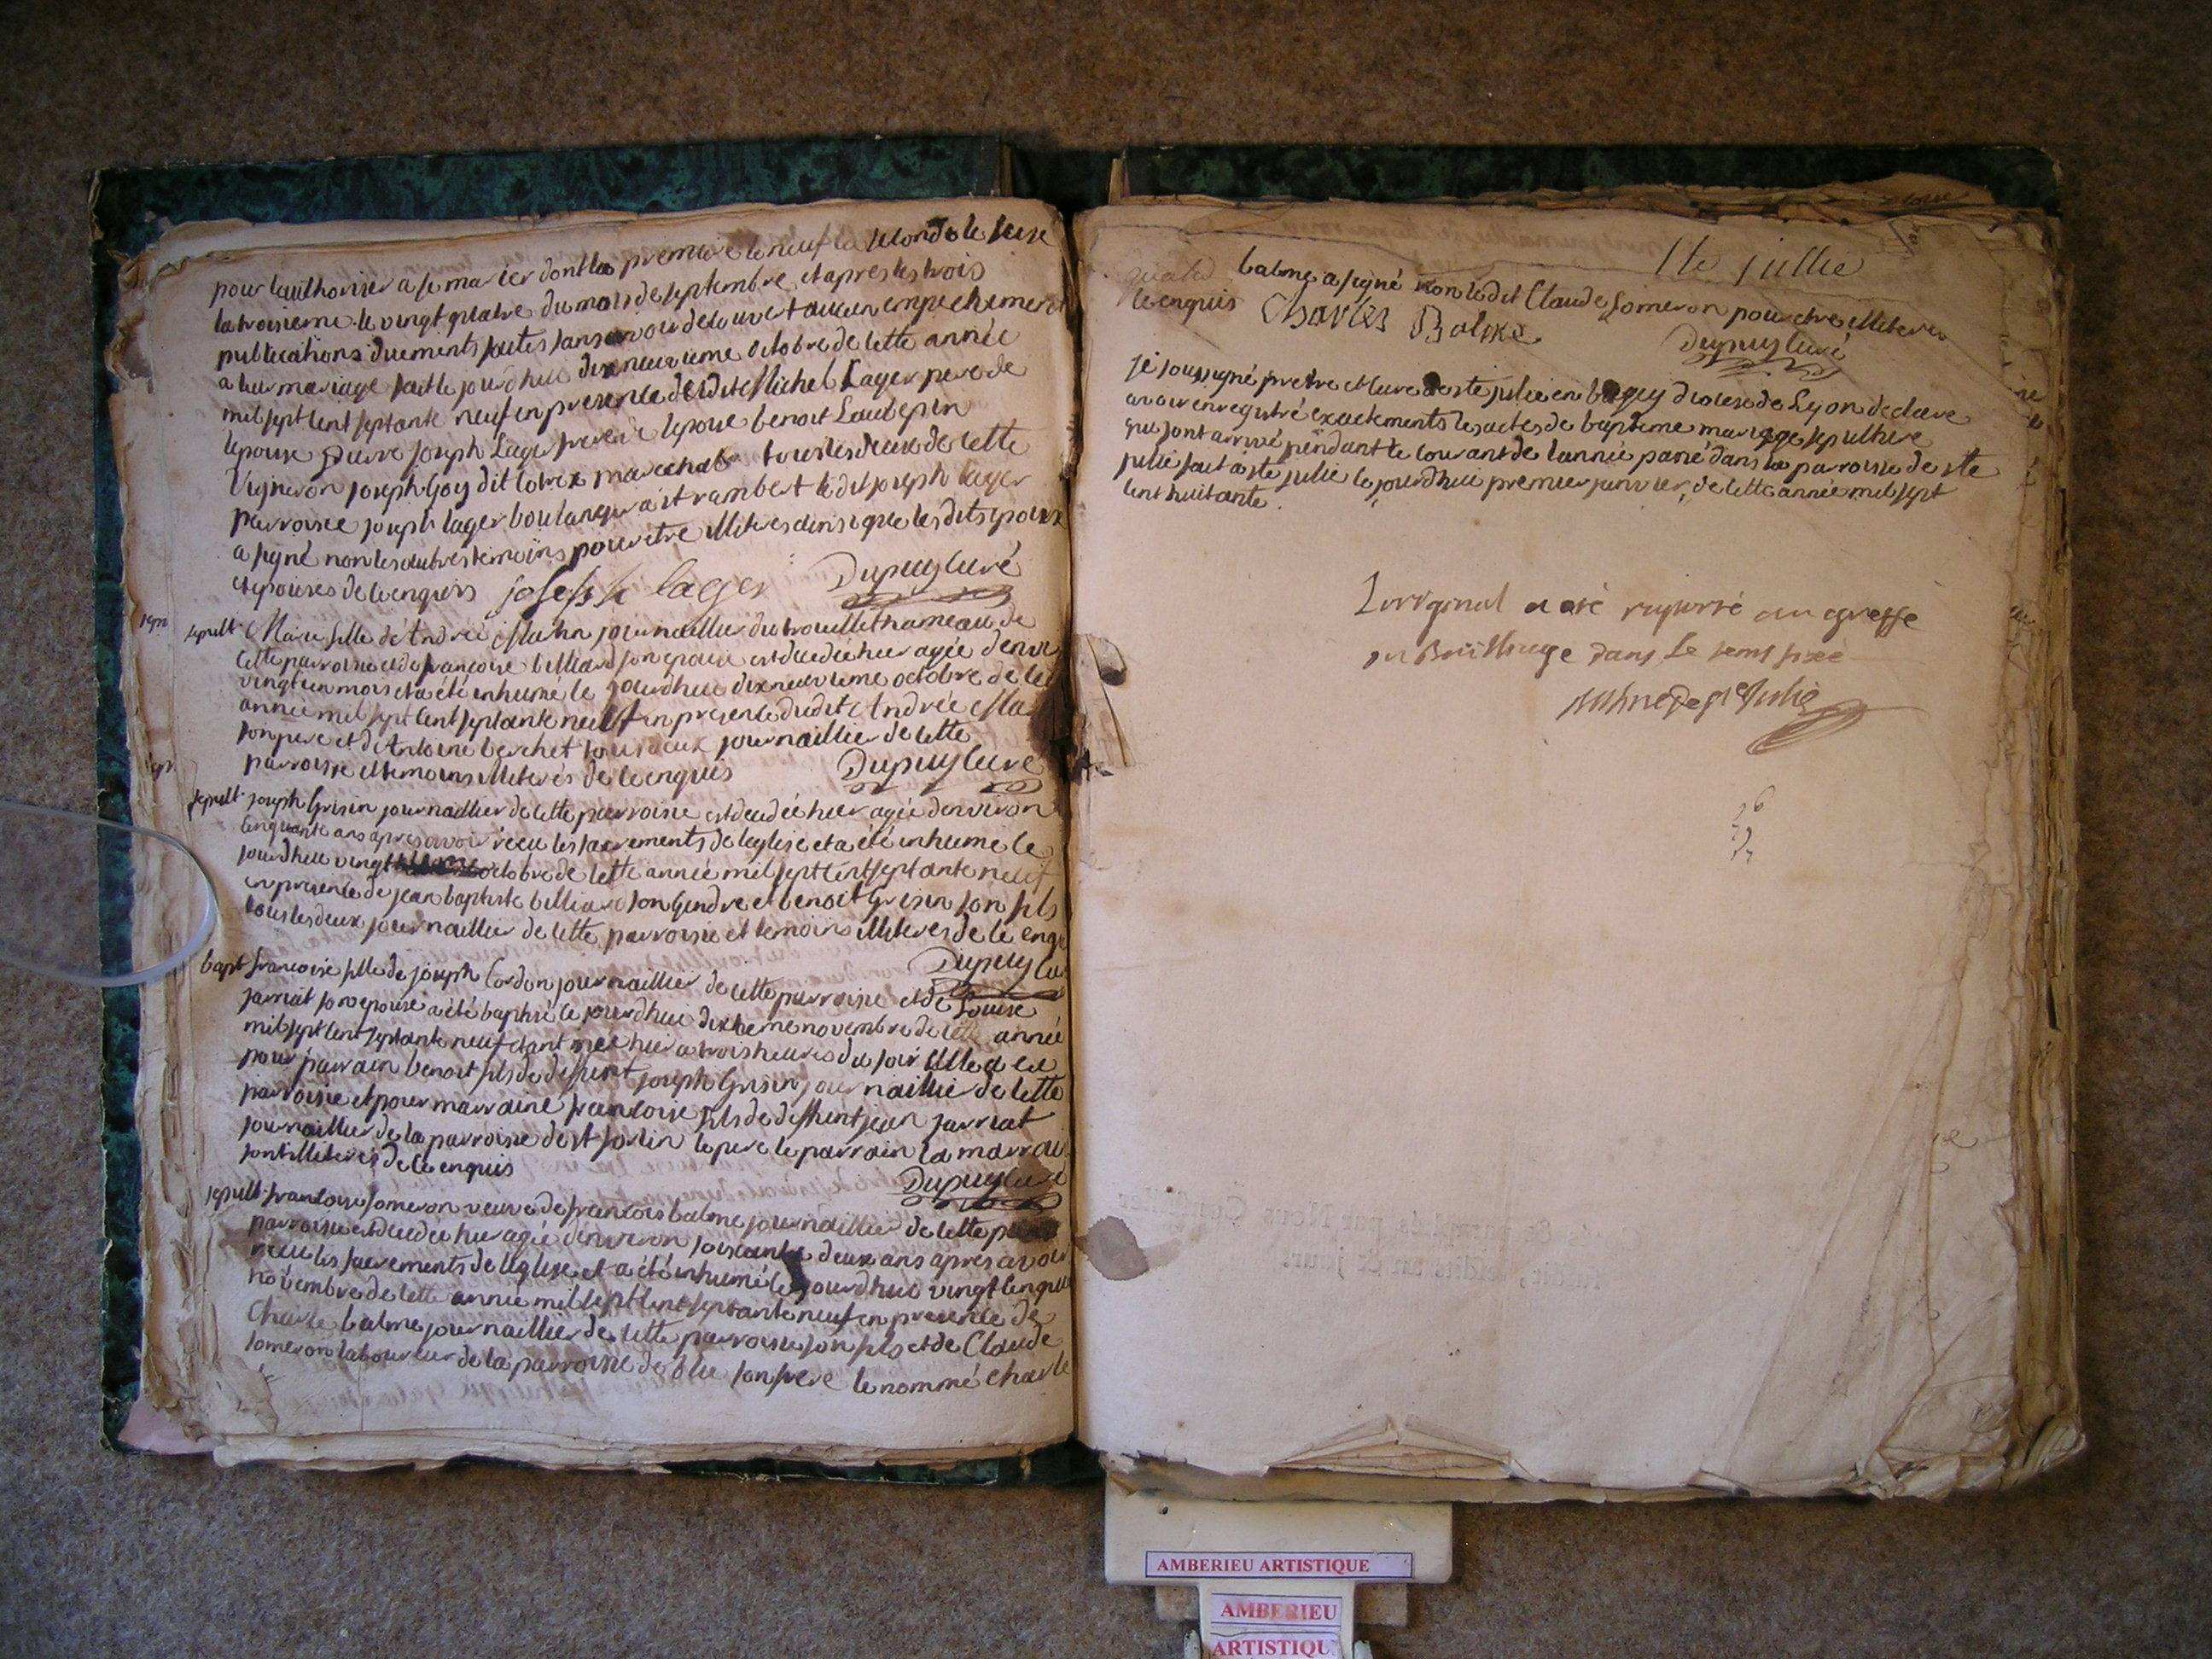 pour lauthoriser a se marier dont la premiere le neuf la seconde le seise
la troisieme le vingt quatre du mois de septembre et apres les trois
publications duements faites sans avoir decouvert aucun empechement
a leur mariage fait le jourdhui dixneuvieme octobre de cette année
mil sept cent septante neuf en presence dudit Michel Lager pere de
lepouse pierre joseph Lager frere de lepouse benoit Laudepin
Vigneron joseph Goy dit marechal tous les deux de cette
parroisse joseph lager boulanger a st rambert le dit joseph lager
a signé non les autres temoins pour etre illiteres ainsi que les dits epoux
et epouses de ce enquis joseph lager Dupuy curé
sepult Marie fille de Andreé Mahn journaillier du trouillet hameau de
cette parroisse et de francoise billiard son epouse est decedée hier agée denvi
vingt un mois et a été inhumé le jourdhui dixneuvieme octobre de ce
année mil sept cent septante neuf en presence dudit Andreé Ma
son pere et de Antoine berchet tous deux journaillier de cette
parroisse et temoins illiterés de ce enquis Dupuy curé
sepult joseph Grisin journaillier de cette parroisse est decedée hier agée denviron
cinquante ans apres avoir recu les sacrements de leglise et a été inhumé le
jourdhui vingt octobre de cette année mil sept cent septante neuf
en presence de jean baptiste billiard son Gendre et benoit Grisin son fils
tous les deux journaillier de cette parroisse et temoins illiteres de ce enqu
Dupuy cu
bapt francoise fille de joseph Cordon journaillier de cette parroisse et de Louise
jarriat son epouse a été baptisé le jourdhui dixieme novembre de cette année
mil sept cent septante neuf etant neé hier a trois heures du soir elle a eu
pour parrain benoit fils de deffunt joseph Grisin journaillier de cette
parroisse et pour marraine francoise fils de deffunt jean jarriat
journaillier de la parroisse de st sorlin le pere le parrain la marrai
sont illiteres de ce enquis Dupuy curé
sepult francoise someron veuve de francois balme journaillier de cette
parroisse est decedée hier agée denviron soiscante deux ans apres avoir
recu les sacrements de leglise et a été inhumé le jourdhui vingt cinqui
novembre de cette année mil sept cent septante neuf en presence de
Charle balme journaillier de cette parroisse son fils et de Claude
someron laboureur de la parroisse de son frere le nommé charle
Ste jullie
balme a signé non le dit Claude someron pour etre illiteres
de ce enquis Charles Balme Dupuy curé
je soussigné pretre et curé de ste julie en bugey diocese de Lyon declare
avoir enregistré exactements les actes de bapteme mariage sepulture
qui sont arrivé pendant le courant de lannée passé dans la parroisse de ste
julie fait a ste julie le jourdhui premier janvier de cette année mil sept
cent huitante.
Loriginal a eté rapporté au greffe
du Bailliage dans le tems fixé
AMBERIEU ARTISTIQUE
AMBERIEU
ARTISTIQU